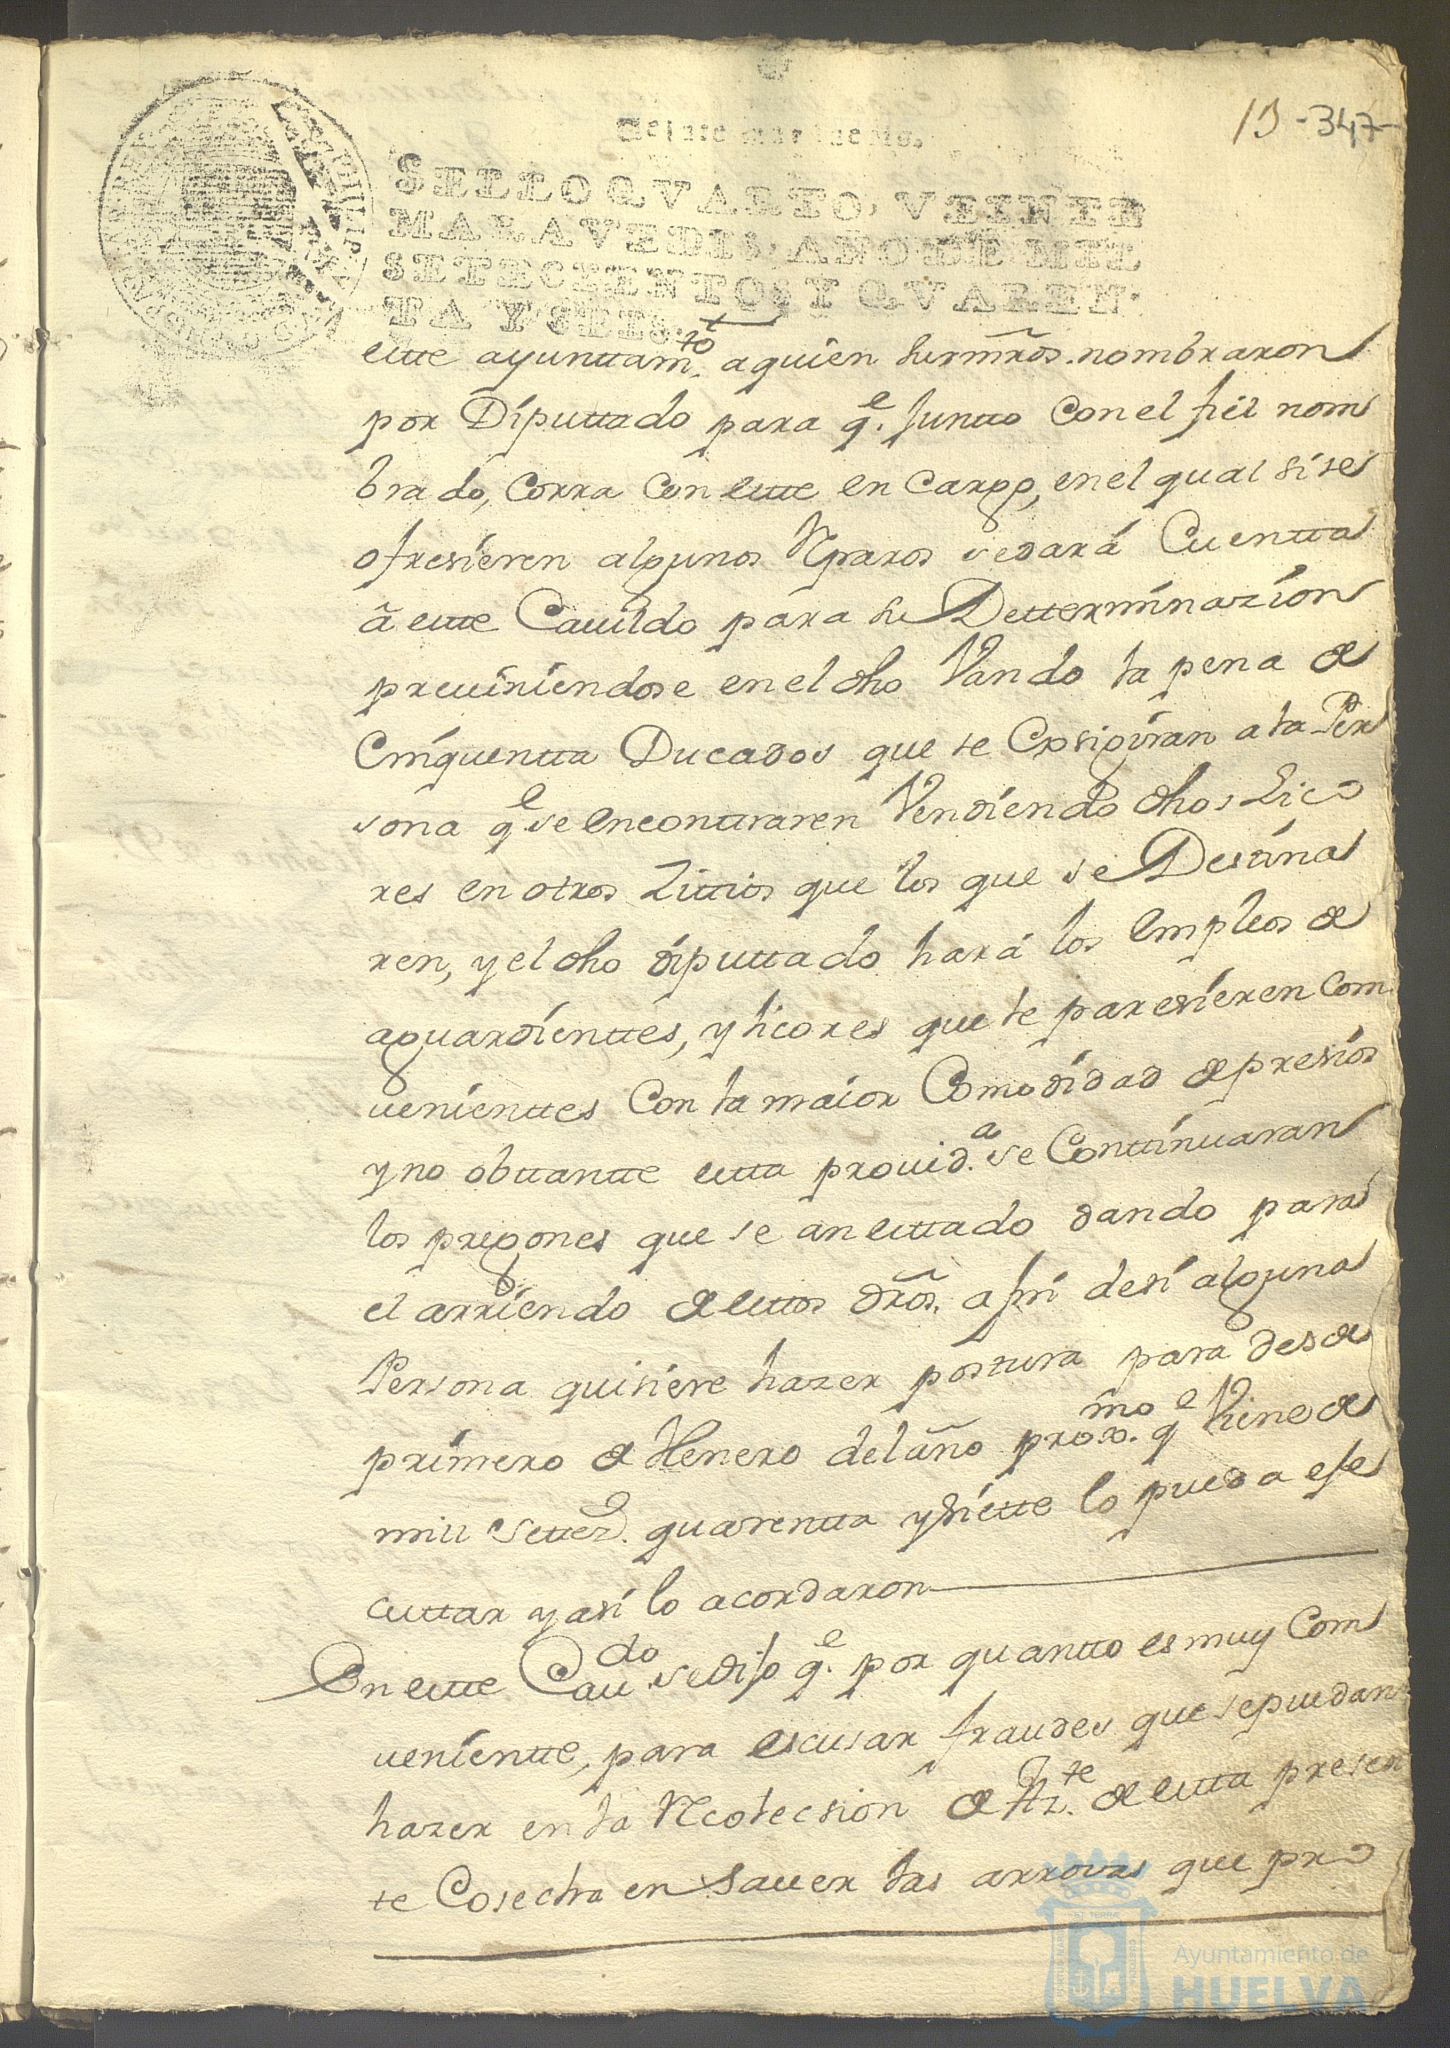 13 - 347 -
Veinte maravedis.
SELLO QVARTO, VEINTE
MARAVEDIS, AÑO DE MIL
SETECIENTOS Y QVAREN-
TA Y SEIS.
este ayunttam.to a quien sus mrds. nombraron
por Diputtado para q.e juntto con el fiel nom
brado, corra con este en cargo, en el qual si se
ofresieren algunos Reparos se dará Cuentta
â este Cauildo para su Determinazion
preuiniendose en el dho Vando la pena de
Cinquentta Ducados que se Exsigiran a la Per
sona q.e se encontraren Vendiendo dhos Lico
res en otros Sittios que los que se Destina
ren, y el dho diputtado hará los empleos de
aguardienttes, y licores que le paresieren com
uenienttes con la maior Comodidad de presios
y no obstante esta prouid.a se Continuaran
los pregones que se an estado dando para
el arriendo de estos dros. assi de si alguna
Persona quisiere hazer postura para desde
primero de Henero del año proxo.mo q.e Viene de
mill Settez.s quarentta y siette lo pueda ese
cuttar y asi lo acordaron
En este Cau.do se dijo q.e por quantto es muy Com
ueniente, para escusar fraudes que se puedan
hazer en la Recolecsion de Az.te de esta presen
te Cosecha en sauer las arrouas que pro
Ayuntamiento de
HUELVA